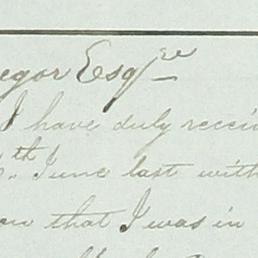 egor Esqre
I have duly receiv
th June last with
on that I was in